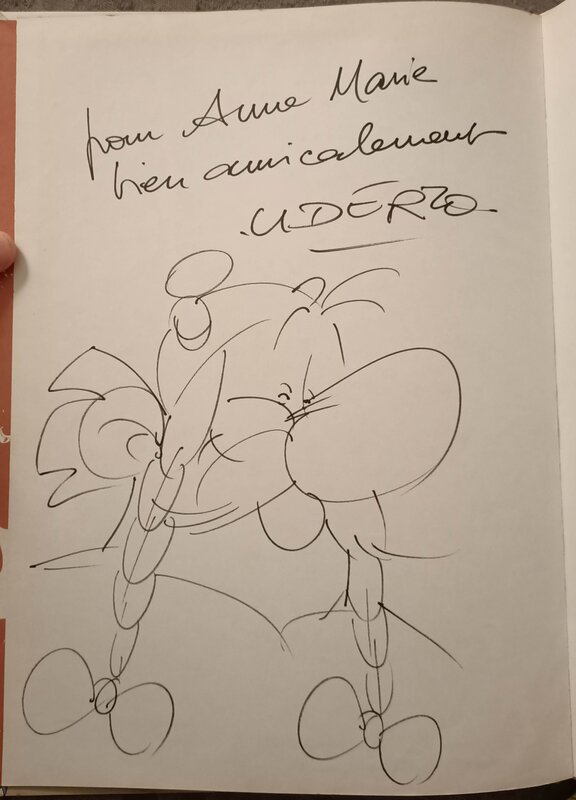 pour Anne Marie
bien amicalement
.UDERZO